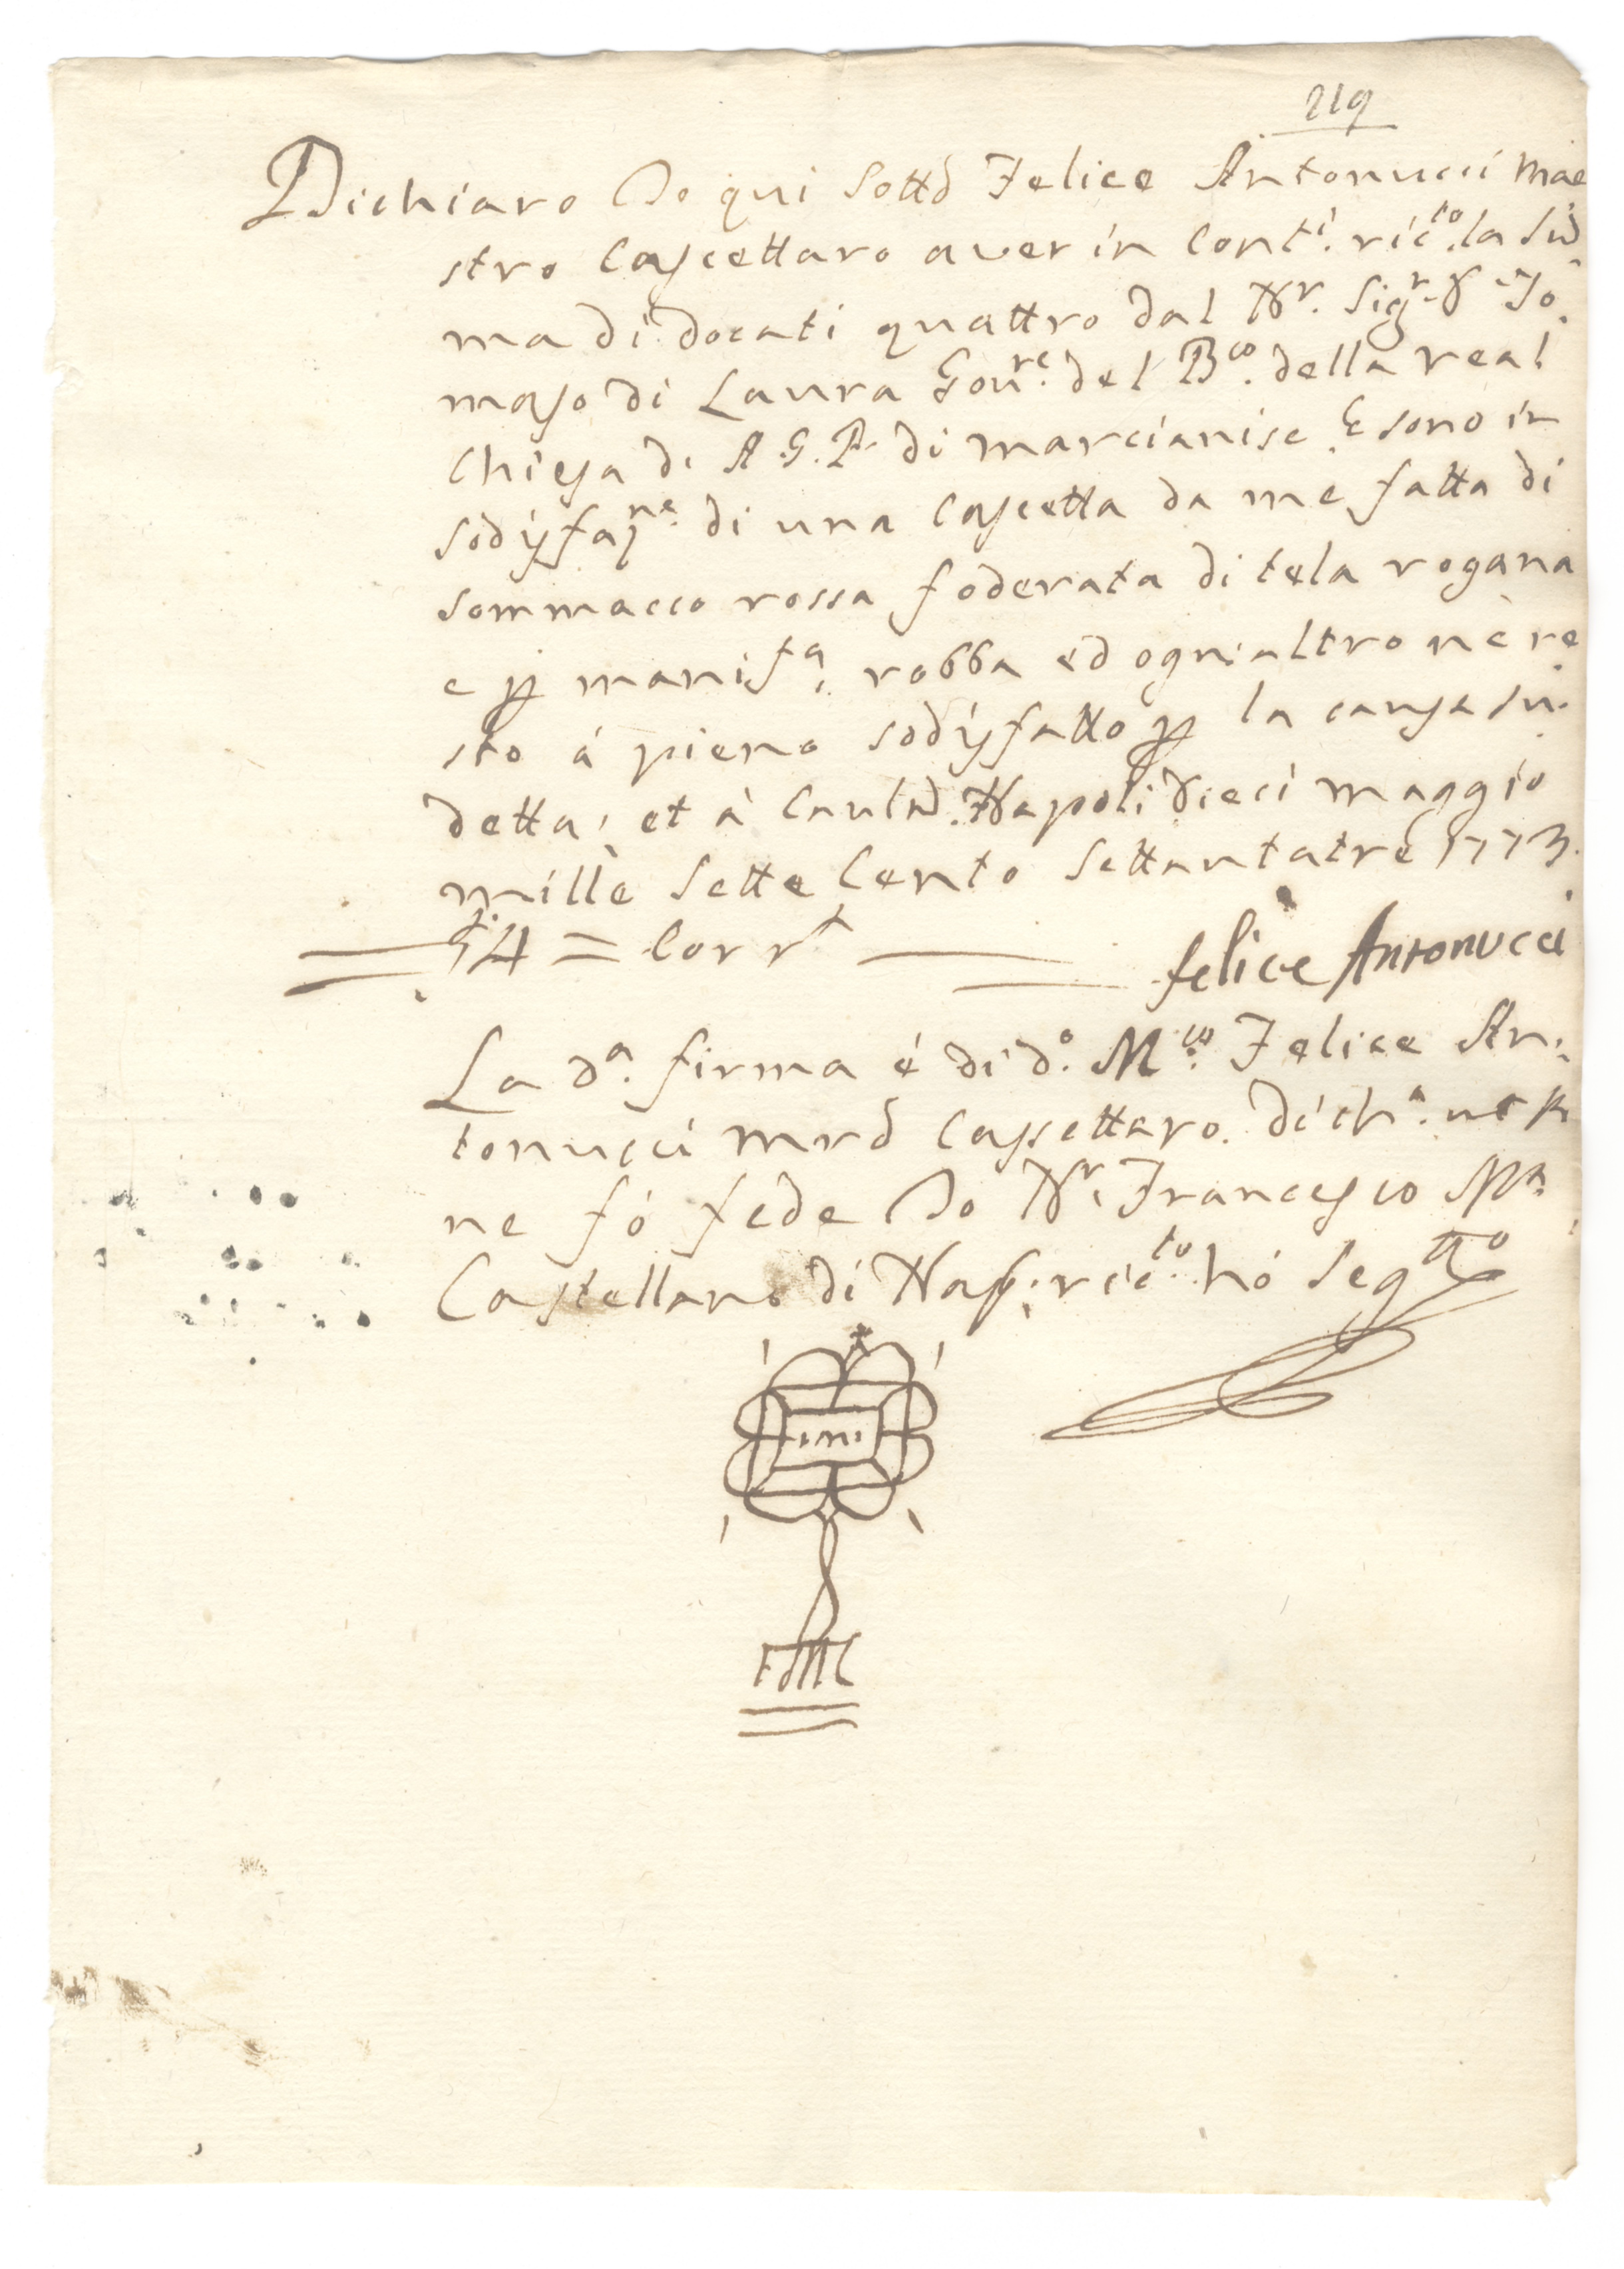 219
Dichiaro Io qui sottõ Felice Antonucci Mae
stro Cascettaro aver in Conti. ric.to la Su
ma di docati quattro dal Nr. Sigr. D. To
maso di Laura Gov.re del Bco. della real
Chiesa di A. G. P. di Marcianise. E sono in
sodisfaz.ne di una Cascetta da me fatta di
sommacco rossa foderata di tela rogana
e p manif.a, robba ed ogni altro nè re
sto à pieno sodisfatto p la causa su.
detta; et à Caulã. Napoli dieci maggio
mille sette Cento Settantatrè 1773.
4 = Corrt
felice Antonucci
La d.a firma è di d.o M.co Felice An:
tonucci mrõ Cassettaro. dich.a ut
ne fò fede Io Nr. Francesco Ma.
Castellano di Nap: ric.to hò Seg.to
FMC